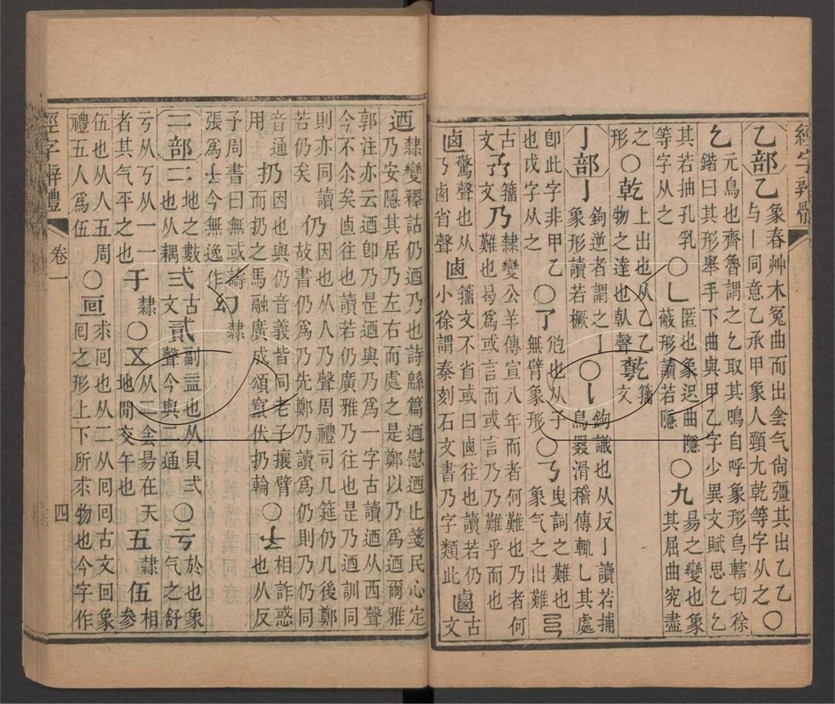 經字辨體
乙部乙象春艸木冤曲而出侌气尙彊其出乙乙
與丨同意乙承甲象人頸尢乾等字从之○
乙元鳥也齊魯謂之乙取其鳴自呼象形鳥轄切徐
鍇曰其形舉手下曲與甲乙字少異文賦思乙乙
其若抽孔乳
等字从之○乚匿也象迟曲隱
蔽形讀若隱○九昜之變也象
其屈曲究盡
之
形○乾上出也从乙乙
物之達也倝聲
籒
文
亅部亅鉤逆者謂之亅
象形讀若橛○𠄌鉤識也从反亅讀若捕
鳥罬滑稽傳輒乚其處
卽此字非甲乙
也戊字从之○了尥也从子
無臂象形○乃曳詞之難也
象气之出難
古
文
籒
文乃隸變公羊傳宣八年而者何難也乃者何
難也曷爲或言而或言乃乃難乎而也
卥驚聲也从
乃卥省聲卥籒文不省或曰卥往也讀若仍
小徐謂泰刻石文書乃字類此
古
文
迺隸變釋詁仍迺乃也詩緜篇迺慰迺止箋民心定
乃安隱其居乃左右而處之是鄭以乃爲迺爾雅
郭注亦云迺卽乃是迺與乃爲一字古讀迺从西聲
今不尒矣卥往也讀若仍廣雅乃往也是乃迺訓同
則亦同讀
若仍矣仍因也从人乃聲周禮司几筵仍几後鄭
故書仍爲乃先鄭乃讀爲仍則乃仍同
音通
用扔因也與仍音義皆同老子攘臂
而扔之馬融廣成頌竄伏扔輪○𠄔相詐惑
也从反
子周書曰無或譸
張爲𠄔今無逸作幻隸
二部二地之數
也从耦弍古
文貳副益也从貝弍
聲今與二通○亏於也象
气之舒
亏从丂从一一
者其气平之也于隸○㐅从二侌昜在天
地閒交午也五隸伍相
參
伍也从人五周
禮五人爲伍○𠄢求囘也从二从囘囘古文回象
囘之形上下所求物也今字作
經字辨體 卷一 四